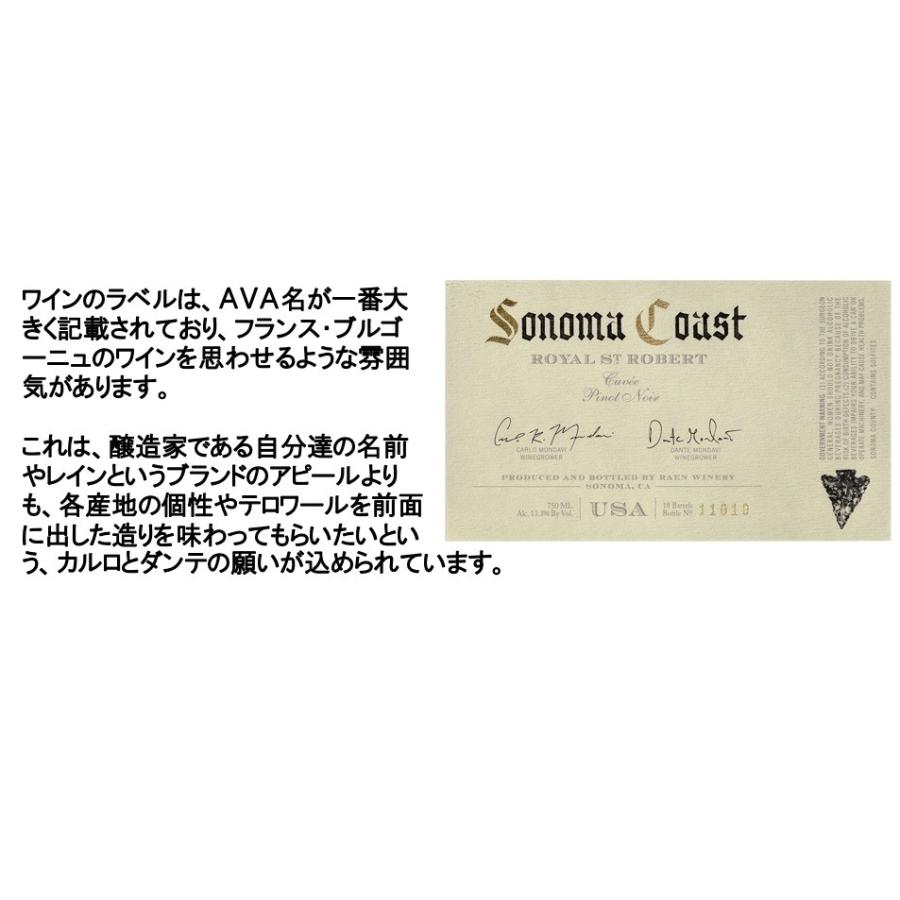 ワインのラベルは、AVA名が一番大
きく記載されており、フランス・ブルゴ
ーニュのワインを思わせるような雰囲
気があります。
これは、醸造家である自分達の名前
やレインというブランドのアピールより
も、各産地の個性やテロワールを前面
に出した造りを味わってもらいたいとい
う、カルロとダンテの願いが込められています。
Sonoma Coast
ROYAL ST ROBERT
Cuvée
Pinot Noir
CARLO MONDAVI
WINEGROWER
DANTE MONDAVI
WINEGROWER
PRODUCED AND BOTTLED BY RAEN WINERY
SONOMA, CA
750 ML
Alc. 13.3% By Vol.
USA
18 Barrels
Bottle Nº 11019
GOVERNMENT WARNING: (1) ACCORDING TO THE SURGEON
GENERAL, WOMEN SHOULD NOT DRINK ALCOHOLIC
BEVERAGES DURING PREGNANCY BECAUSE OF THE
RISK OF BIRTH DEFECTS. (2) CONSUMPTION OF ALCOHOLIC
BEVERAGES IMPAIRS YOUR ABILITY TO DRIVE A CAR OR
OPERATE MACHINERY, AND MAY CAUSE HEALTH PROBLEMS.
SONOMA COUNTY CONTAINS SULFITES